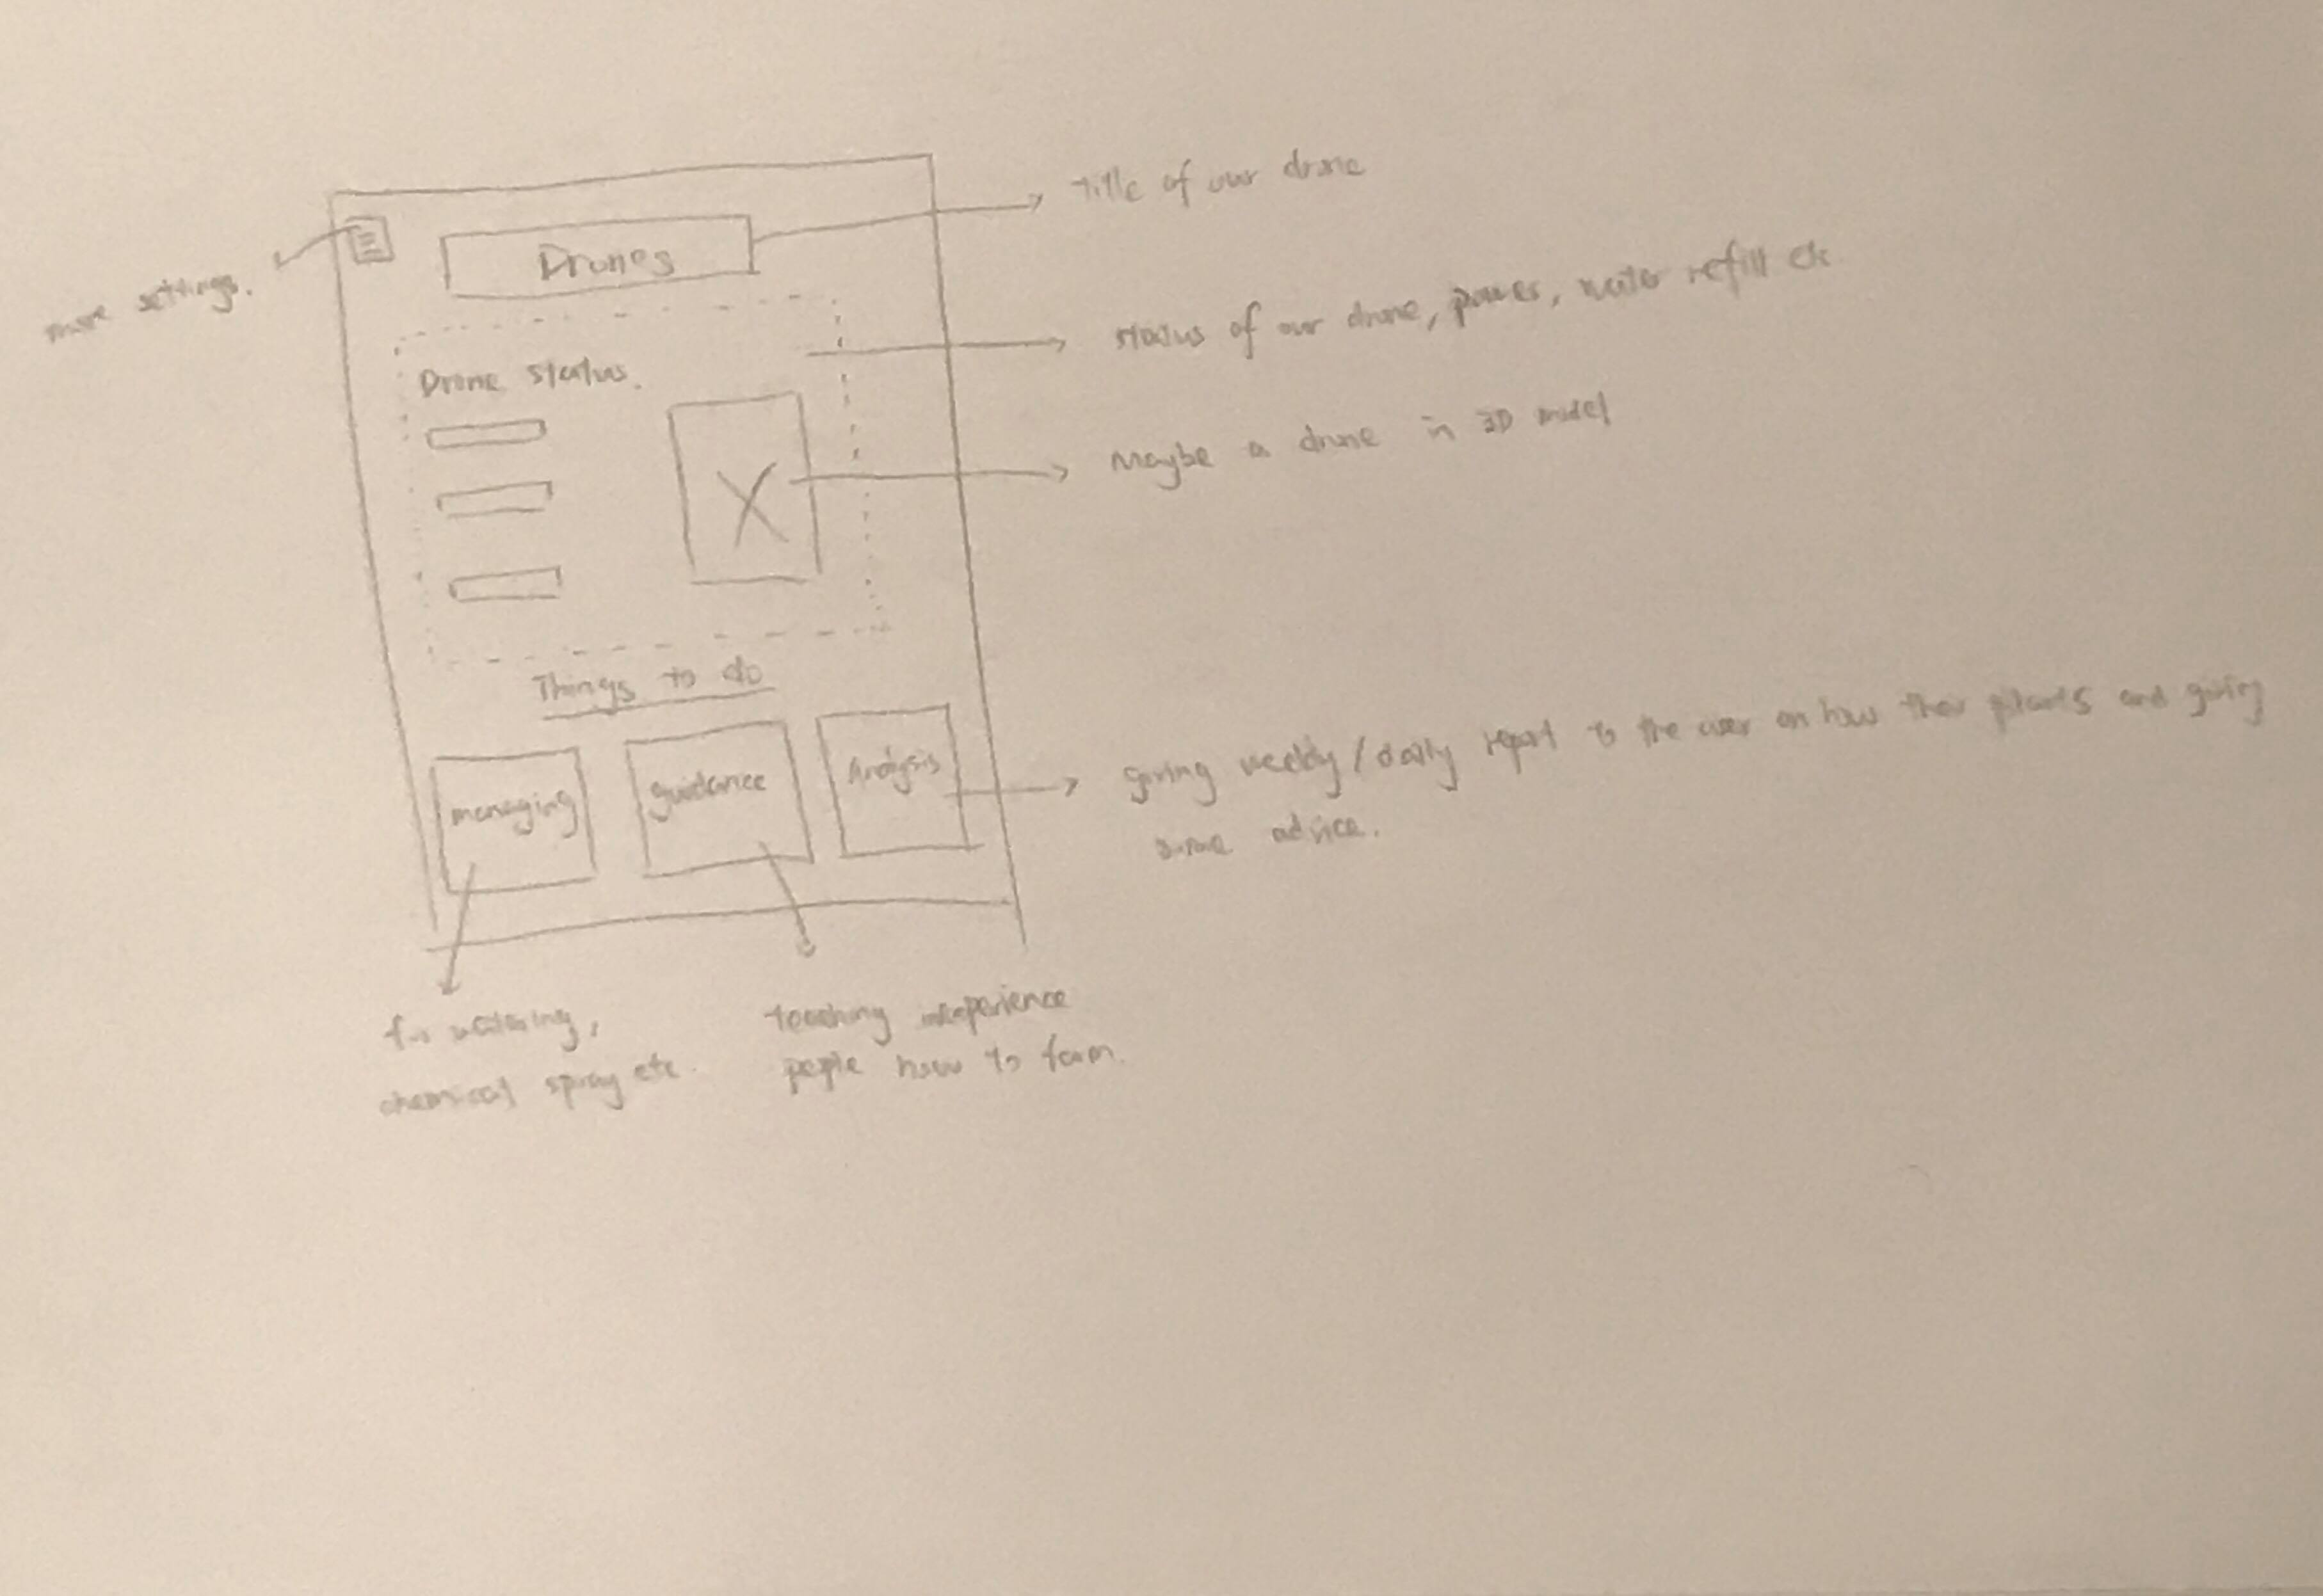 title of our drone
more settings.
Drones
status of our drone, power, water refill etc
Drone status.
Maybe a drone in 3D model
Things to do
managing
guidance
Analysis
giving weekly/daily report to the user on how their plants and giving
some advice.
for watering,
chemical spray etc.
teaching inexperience
people how to farm.